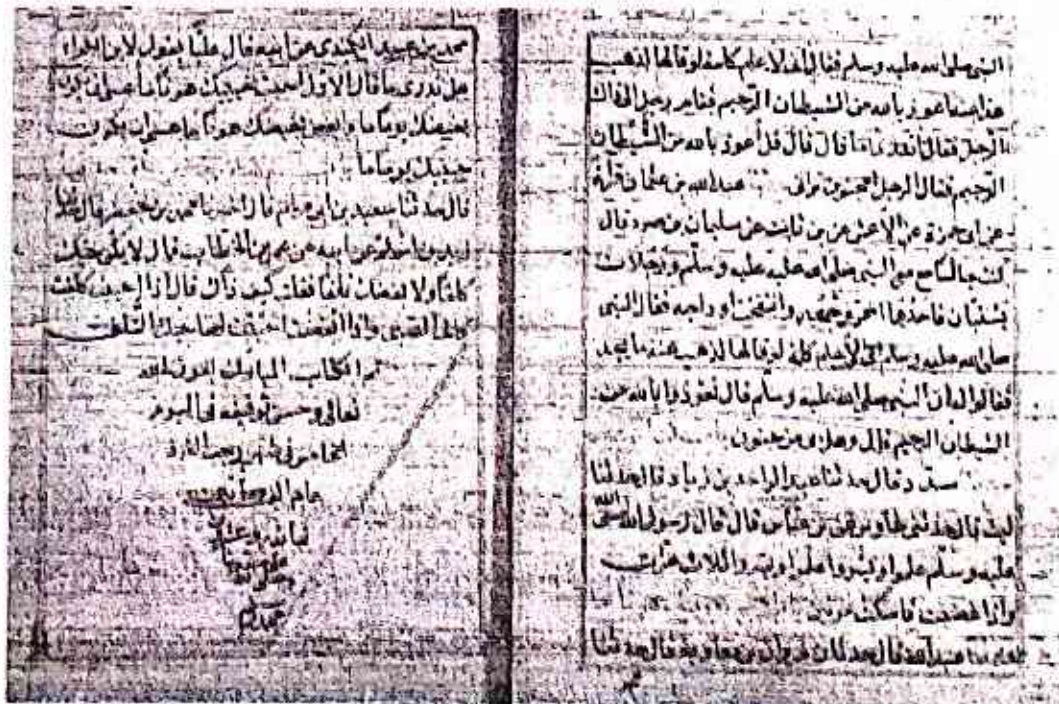 النبي صلى الله عليه وسلم فقال إني لأعلم كلمة لو قالها لذهب
هذا عنه أعوذ بالله من الشيطان الرجيم فقام رجل إلى ذاك
الرجل فقال أتدري ما قال قال قل أعوذ بالله من الشيطان
الرجيم فقال الرجل أمجنون تراني عبد الله بن عثمان قراءة
عن أبي حمزة عن الأعمش عن بن ثابت عن سليمان بن صرد قال
كنت جالسا مع النبي صلى الله عليه وسلم ورجلان
يستبان فأحدهما احمر وجهه وانتفخت اوداجه فقال النبي
صلى الله عليه وسلم إني لأعلم كلمة لو قالها لذهب عنه ما يجد
فقالوا له ان النبي صلى الله عليه وسلم قال تعوذ بالله من
الشيطان الرجيم قال وهل بي من جنون
مسدد قال حدثنا عبد الواحد بن زياد قال حدثنا
ليث قال حدثني طاوس عن بن عباس قال قال رسول الله صلى الله
عليه وسلم علموا ويسروا علموا ويسروا ثلاث مرات
وإذا غضبت فاسكت مرتين
عبد الله قال حدثنا مروان بن معاوية قال حدثنا
محمد بن عبيد الكندي عن ابيه قال عليا يقول لابن الكواء
هل تدري ما قال الاول احبب حبيبك هونا ما عسى ان يكون
بغيضك يوما ما وابغض بغيضك هونا ما عسى ان يكون
حبيبك يوما ما
قال حدثنا سعيد بن ابي مريم قال اخبرنا محمد بن جعفر قال حدثنا
زيد بن اسلم عن ابيه عن عمر بن الخطاب قال لا يكن حبك
كلفا ولا بغضك تلفا فقلت كيف ذاك قال اذا احببت كلفت
كلف الصبي واذا ابغضت احببت لصاحبك التلف
تم الكتاب المبارك بعون الله
تعالى وحسن توفيقه في اليوم
الخامس في شهر رجب الفرد
عام